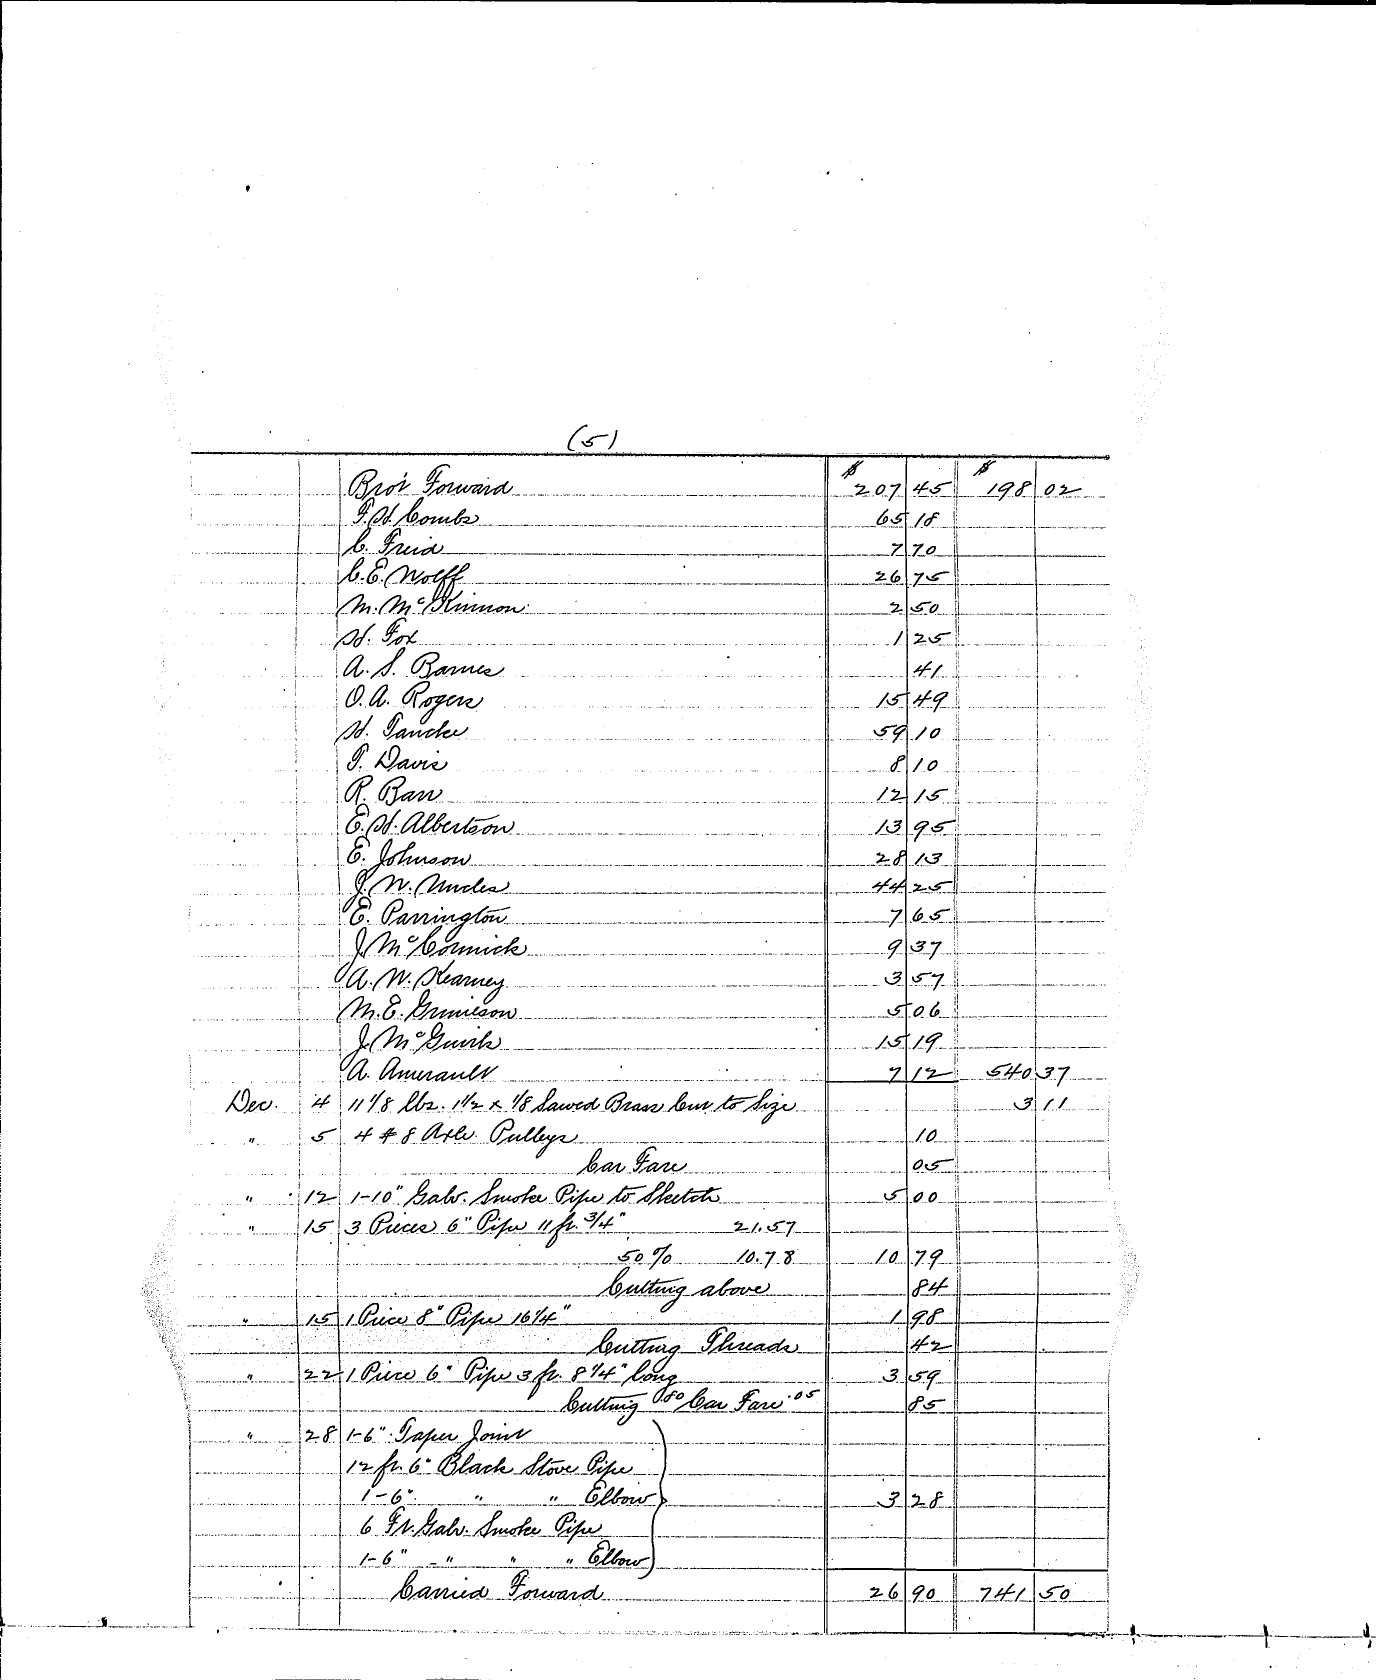 (5)
$ $
Bro't Forward 207 45 198 02
F. H. Combs 65 18
C. Freid 7 70
C. E. Wolff 26 75
M. McKinnon 2 50
H. Fox 1 25
A. S. Barnes 41
O. A. Rogers 15 49
H. Tancke 59 10
T. Davis 8 10
R. Barr 12 15
E. H. Albertson 13 95
E. Johnson 28 13
J. W. 44 25
E. Parrington 7 65
J. McCormick 9 37
A. W. Kearney 3 57
M. E. Grimeson 5 06
J. McGuirk 15 19
A. Amerault 7 12 540 37
Dec. 4 11 1/8 lbs. 1 1/2 x 1/8 Sawed Brass Cut to Size 3 11
" 5 4 # 8 Axle Pulleys 10
Car Fare 05
" 12 1-10" Galv. Smoke Pipe to Sketch 5 00
" 15 3 Pieces 6" Pipe 11 ft. 3/4" 21.57
50% 10.78 10 79
Cutting above 84
" 15 1 Piece 8" Pipe 16 1/4" 1 98
Cutting Threads 42
" 22 1 Piece 6" Pipe 3 ft. 8 1/4" long 3 59
Cutting .80 Car Fare .05 85
" 28 1-6" Taper Joint
12 ft. 6" Black Stove Pipe
1-6" " " Elbow 3 28
6 Ft. Galv. Smoke Pipe
1-6" " " " Elbow
Carried Forward 26 90 741 50